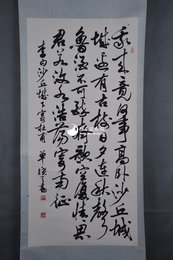 我来竟何事高卧沙丘城
城边有古树日夕连秋声
鲁酒不可醉齐歌空复情思
君若汶水浩荡寄南征
李白沙丘城下寄杜甫 单